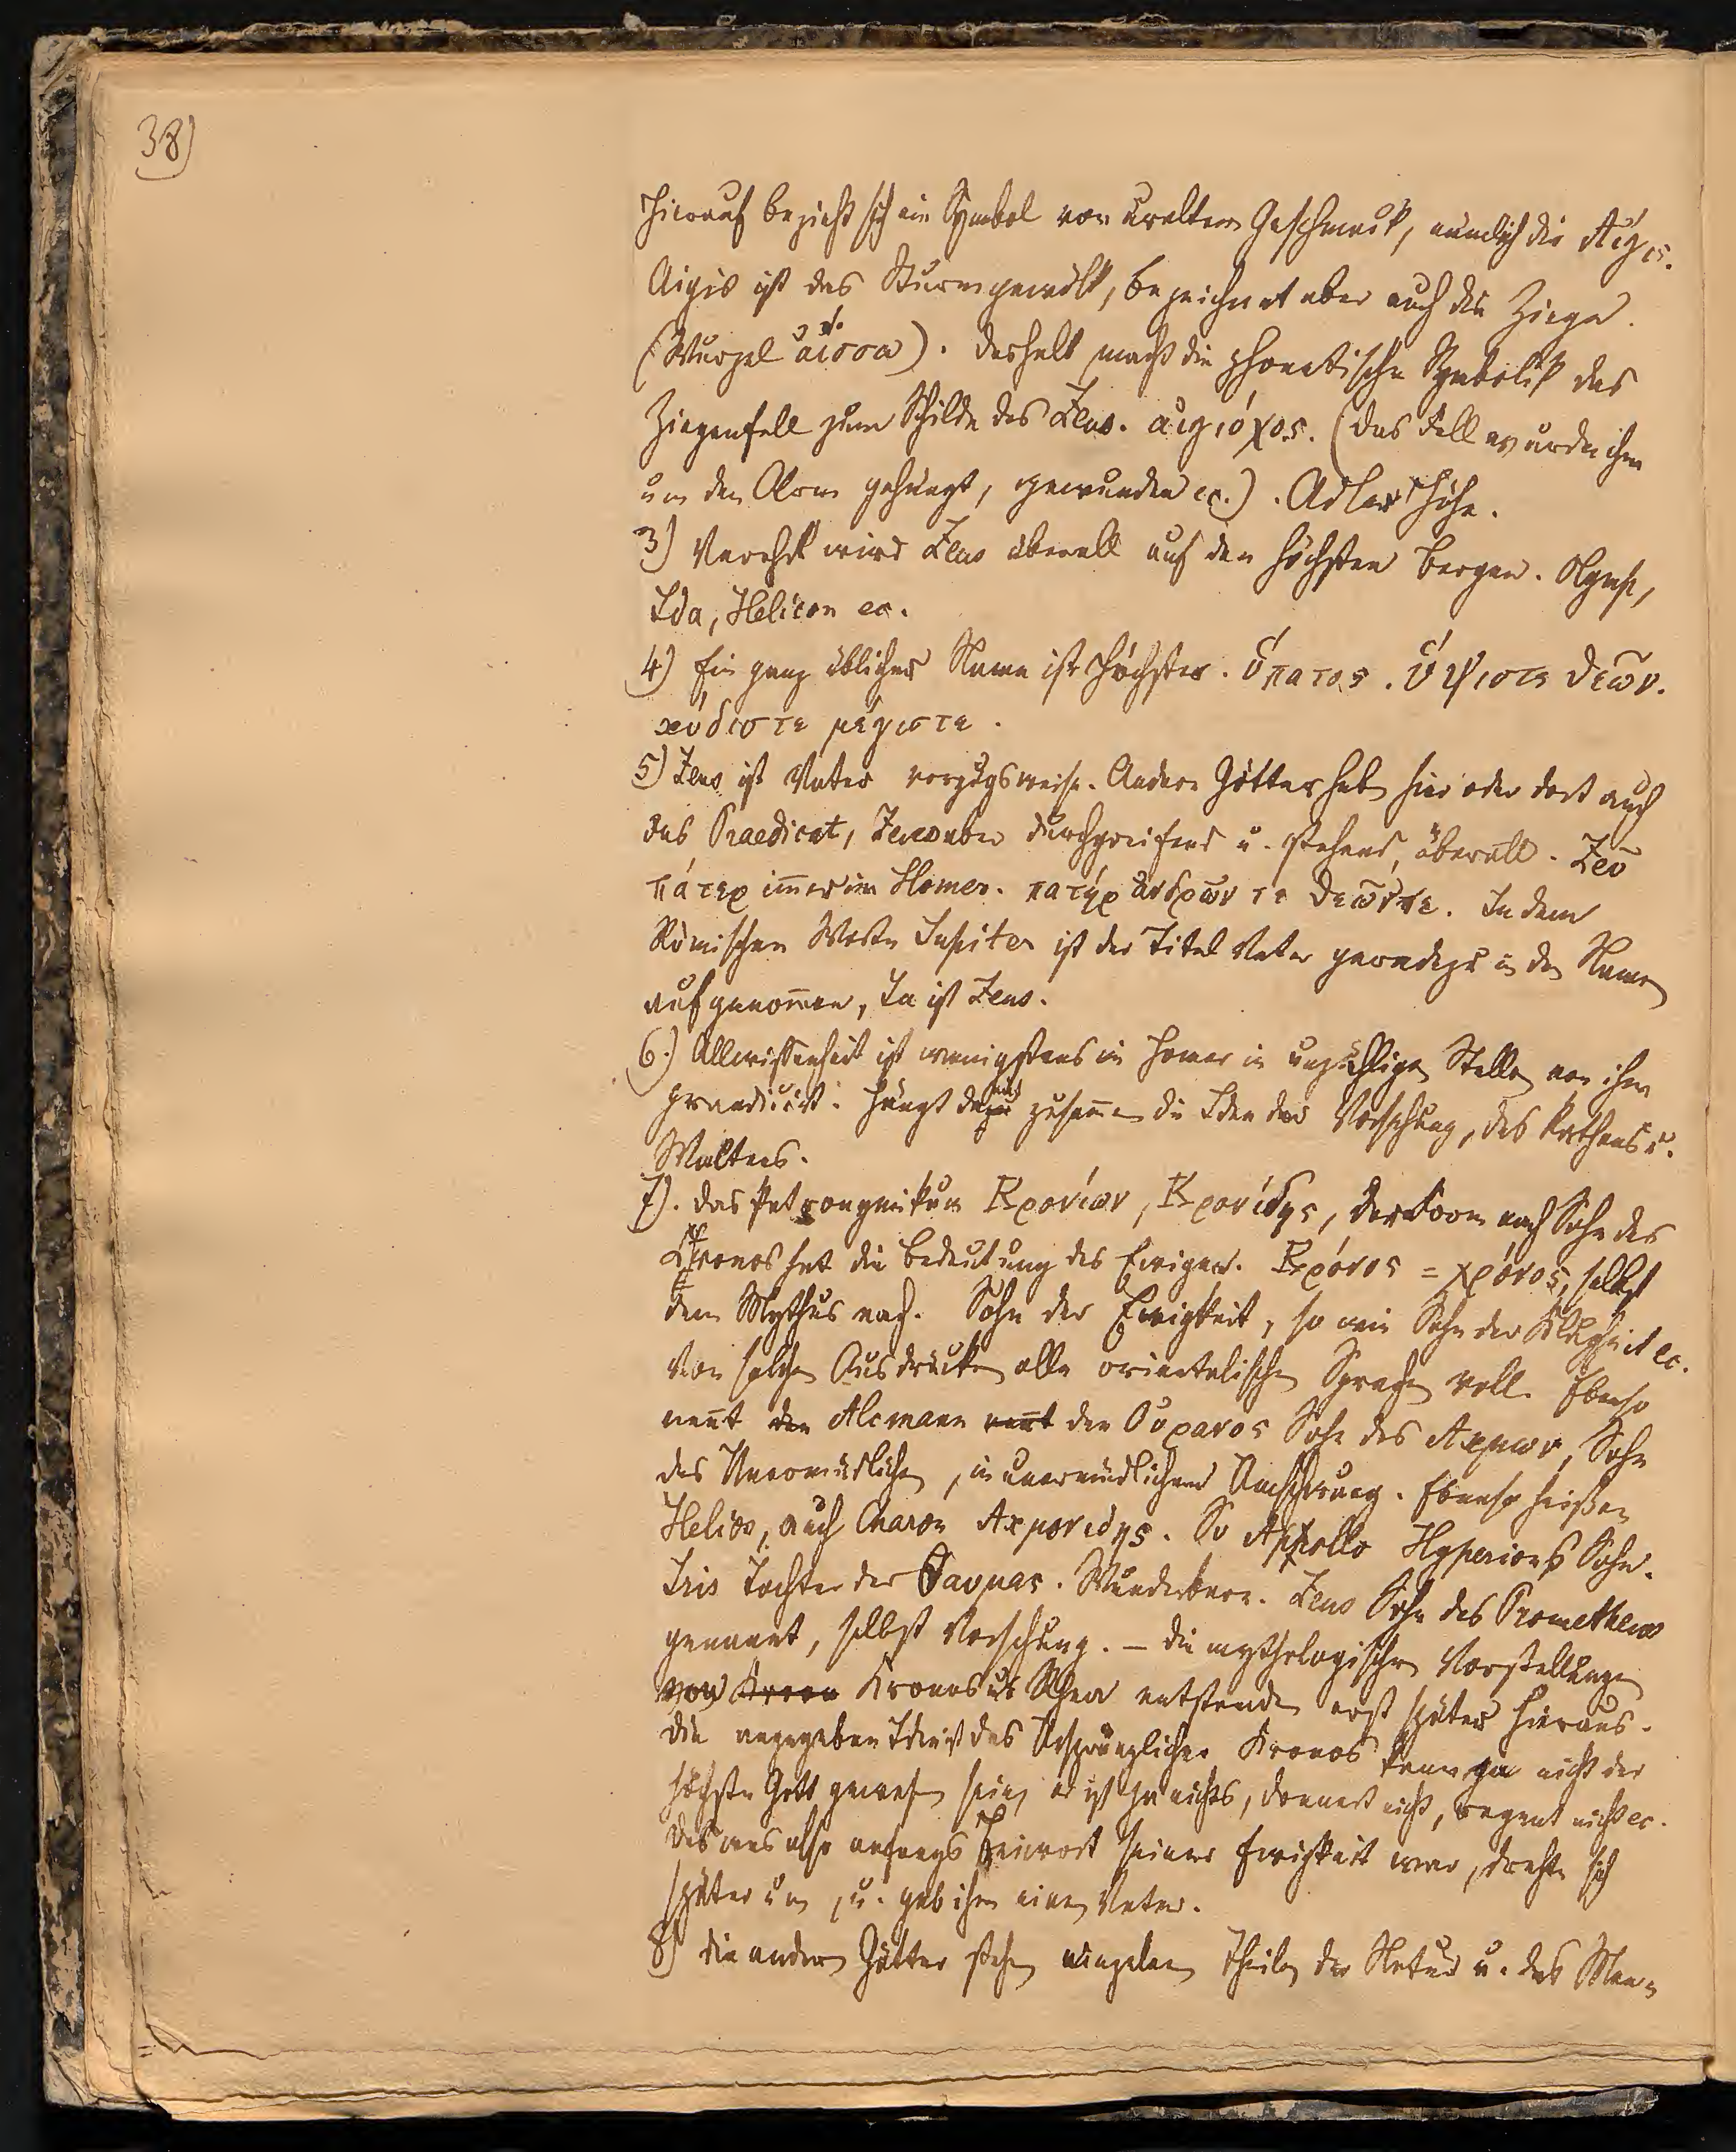 38)
Hierauf bezieht sich ein Symbol von uraltem Geschmack, nämlich die Aegis.
Aigis ist das Sturmgewölk, bezeichnet aber auch die Ziege.
(Wurzel ἀίσσω). Deshalb macht die phonetische Symbolik das
Ziegenfell zum Schilde des Zeus. αιγιόχος. (Das Fell wurde ihm
um den Arm gehängt, gewunden ec.). Adler Höhe.
3) Verehrt wird Zeus überall auf den höchsten Bergen. Olymp,
Ida, Helicon ec.
4) Ein ganz üblicher Name ist Höchster. ὕπατος. ὕψιστε θεῶν.
κύδιστε μέγιστε.
5) Zeus ist Vater vorzugsweise. Andere Götter hab hier oder dort auch
das Praedicat, Zeus aber durchgreifend u. stehend, überall. Ζεῦ
πάτερ im̄er im Homer. πατήρ ἀνδρῶν τε θεῶν τε. In dem
Römischen Worte Jupiter ist der Titel Vater geradezu in den Namen
aufgenom̄en, Ju ist Zeus.
6.) Allwissenheit ist wenigstens im Homer in unzähligen Stellen von ihm
praedicirt. Hängt damit zusam̄en die Idee der Vorsehung, des Rathens u.
Waltens.
7). Das Patronymikum Κρονίων, Κρονίδης, der Form nach Sohn des
Kronos hat die Bedeutung des Ewigen. Κρόνος = χρόνος, selbst
dem Mythus nach. Sohn der Ewigkeit, so wie Sohn der Klugheit ec.
Von solchen Ausdrücken alle orientalischen Sprachen voll. Ebenso
nen̄t den Alcmann nen̄t den Ουρανος Sohn des Ακμων, Sohn
des Unermüdlichen, in unermüdlichem Umschwung. Ebenso heißen
Helios, auch Charon Ακμονιδης. So Appollo Hyperions Sohn.
Iris Tochter der Θαυμας. Wunderbare. Zeus Sohn des Prometheus
genannt, selbst Vorsehung. – Die mythologischen Vorstellungen
von Kron Kronos u. Rhea entstanden erst später hieraus.
Die angegeben Idee ist das Ursprüngliche. Kronos kann ja nicht der
höchste Gott gewesen sein, er ist ja nichts, donnert nicht, regnet nicht ec.
Das was also anfangs Beiwort seiner Ewigkeit war, drehte sich
später um, u. gab ihm einen Vater.
8) Die andern Götter stehen einzelnen Theilen der Natur u. des Men-